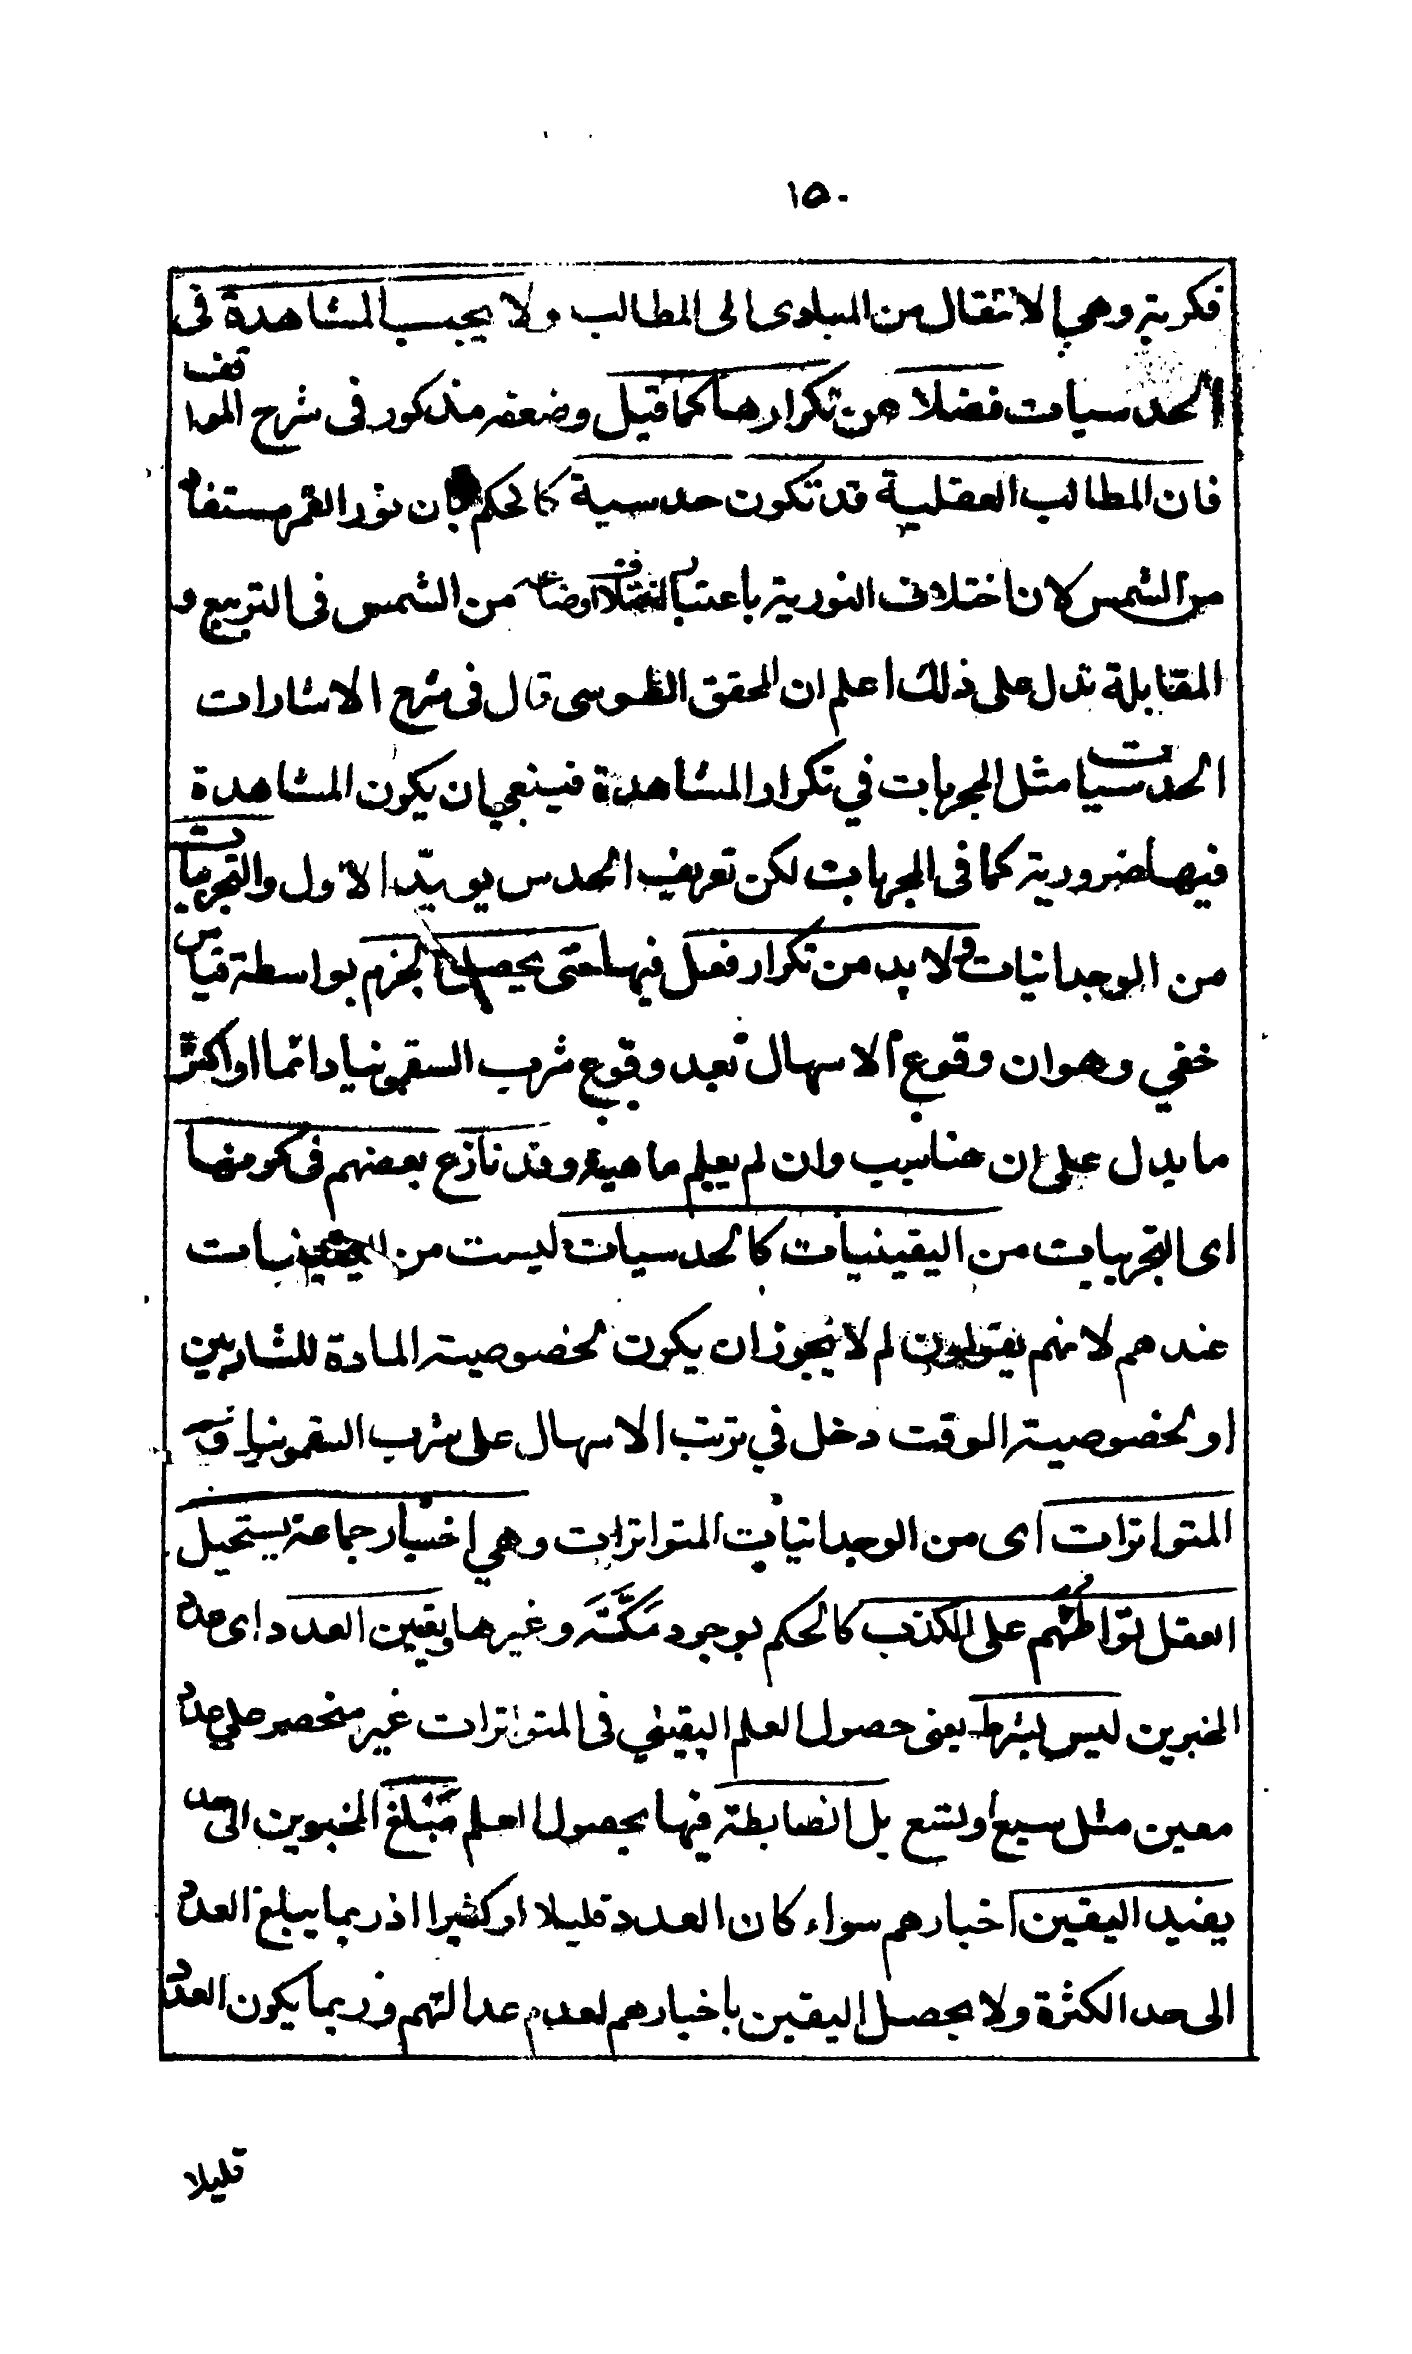 ١٥٠
فكرية وهي الانتقال من المبادى الى المطالب ولا يجب المشاهدة فى
الحدسيات فضلا عن تكرارها كما قيل وضعفه مذكور فى شرح المواقف
فان المطالب العقلية قد تكون حدسية كالحكم بان نور القمر مستفاد
من الشمس لان اختلاف النورية باعتبار اختلاف اوضاعه من الشمس فى التربيع و
المقابلة تدل على ذلك اعلم ان المحقق الطوسى قال فى شرح الاشارات
الحدسيات مثل المجربات في تكرار المشاهدة فينبغي ان يكون المشاهدة
فيها ضرورية كما فى المجربات لكن تعريف الحدس يويّد الاول والتجربيات
من الوجدانيات ولا بد من تكرار فعل فيها حتى يحصل الجزم بواسطة قياس
خفي وهو ان وقوع الاسهال بعد وقوع شرب السقمونيا دائما او اكثرً
ما يدل على ان هنا سبب وان لم يعلم ماهيته وقد نازع بعضهم فى كونها
اى التجربيات من اليقينيات كالحدسيات ليست من اليقينيات
عندهم لانهم يقولون لم لا يجوز ان يكون لخصوصية المادة للشاربين
او لخصوصية الوقت دخل في ترتب الاسهال على شرب السقمونيا و
المتواترات اى من الوجدانيات المتواترات وهي اخبار جماعة يستحيل
العقل تواطئهم على الكذب كالحكم بوجود مَكَّةَ وغيرها وتعين العدد اى عدد
المخبرين ليس بشرط يعنى حصول العلم اليقيني فى المتواترات غير منحصر على عدد
معين مثل سبع او تسع بل الضابطة فيها بحصول العلم مَبْلغ المخبرين الى حد
يفيد اليقين اخبارهم سواء كان العدد قليلا او كثيرا اذ ربما يبلغ العدد
الى حد الكثرة ولا يحصل اليقين باخبارهم لعدم عدالتهم وربما يكون العدد
قليلا